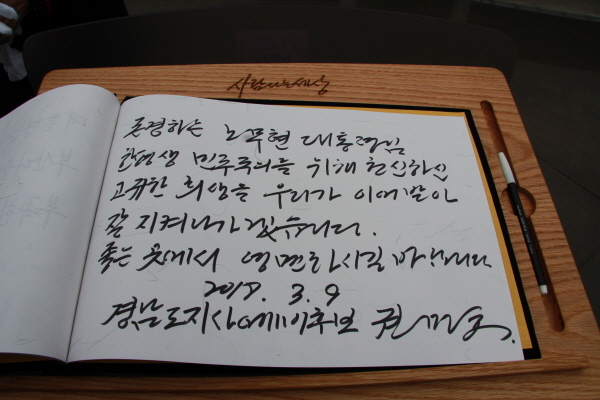 사람사는세상
존경하는 노무현 대통령님
한평생 민주주의를 위해 헌신하신
고귀한 희생을 우리가 이어받아
잘 지켜나가겠습니다.
좋은 곳에서 영면하시길 바랍니다
2017. 3. 9
경남도지사예비후보 권